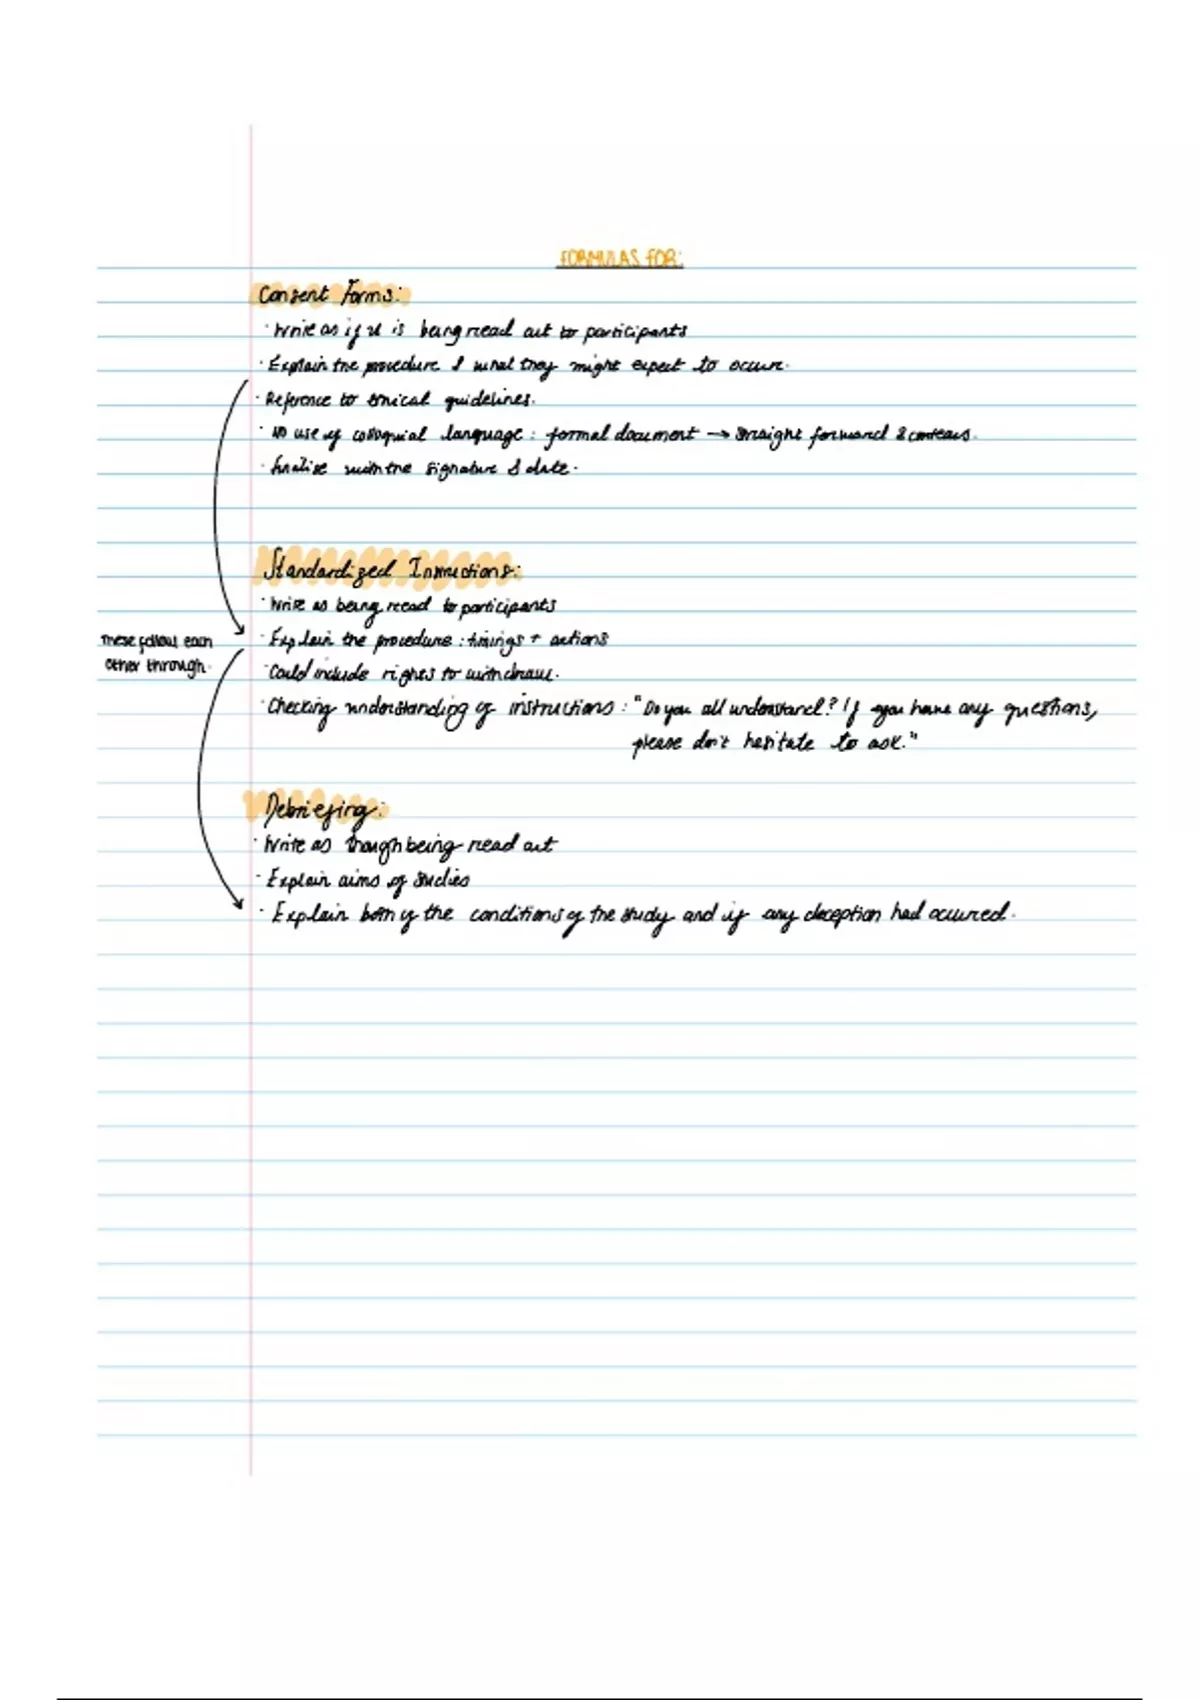 FORMULAS FOR:
Consent Forms:
· Write as if it is being read out to participants
· Explain the procedure & what they might expect to occur.
· Reference to ethical guidelines.
· No use of colloquial language : formal document → straight forward &
· finalise with the signature & date.
Standardized Instructions:
· Write as being read to participants
These follow each
other through.
· Explain the procedure : timings + actions
· Could include rights to withdraw.
· Checking understanding of instructions : "Do you all understand? If you have any questions,
please don't hesitate to ask."
Debriefing:
· Write as though being read out
· Explain aims of studies
· Explain both of the conditions of the study and if any deception had occurred.